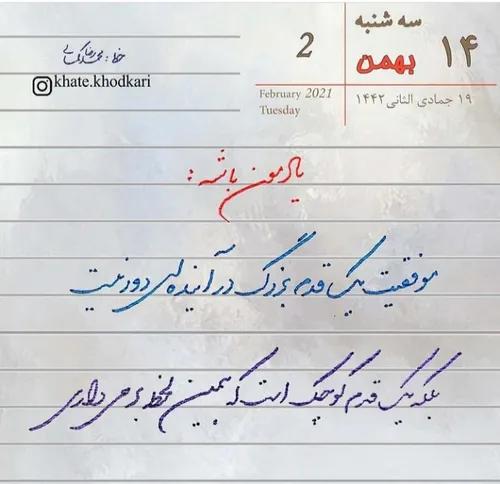 سه شنبه
۱۴ بهمن
۱۹ جمادی الثانی ۱۴۴۲
2
February 2021
Tuesday
خط: محمدرضا
khate.khodkari
یادمون باشه:
موفقیت یک قدم بزرگ در آینده‌ای دور نیست
بلکه یک قدم کوچک است که همین لحظه برمی‌داری